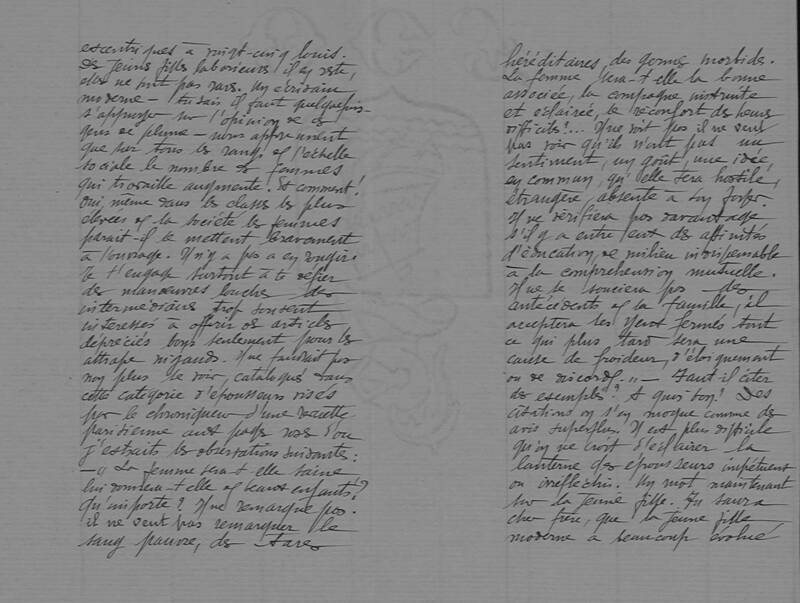 excentriques à vingt-cinq louis.
Des jeunes filles laborieuses il y en reste,
elles ne sont pas rares. Un écrivain
moderne – tu sais il faut quelquefois
s'appuyer sur l'opinion de ces
gens de plume – nous apprennent
que sur tous les rangs de l'échelle
sociale le nombre de femmes
qui travaille augmente. Et comment!
Oui, même dans les classes les plus
élevées de la société les femmes
paraît-il se mettent bravement
à l'ouvrage. Il n'y a pas à en rougir.
Je t'engage surtout à te défier
des manœuvres louches des
intermédiaires trop souvent
intéressés à offrir des articles
dépréciés bons seulement pour les
attrape nigauds. Il ne faudrait pas
non plus te voir, catalogué dans
cette catégorie d'épouseurs visés
par le chroniqueur d'une gazette
parisienne aux pages roses d'où
j'extraits les observations suivantes:
– « La femme sera-t-elle saine
lui donnera-t-elle de beaux enfants?
Qu'importe? Il ne remarque pas.
il ne veut pas remarquer le
sang pauvre, des tares
héréditaires, des germes morbides.
La femme sera-t-elle la bonne
associée, la compagne instruite
et éclairée, le réconfort des heures
difficiles?... Il ne voit pas il ne veut
pas voir qu'ils n'ont pas un
sentiment, un goût, une idée,
en commun, qu'elle sera hostile,
étrangère, absente à son foyer.
Il ne vérifiera pas davantage
s'il y a entre eux des affinités
d'éducation, de milieu indispensable
à la compréhension mutuelle.
Il ne se souciera pas des
antécédents de la famille, il
acceptera les yeux fermés tout
ce qui plus tard sera une
cause de froideur, d'éloignement
ou de discorde. » – Faut-il citer
des exemples? A quoi bon! Des
citations on s'en moque comme des
avis superflus. Il est plus difficile
qu'on ne croit d'éclairer la
lanterne des épouseurs impétueux
ou irréfléchis. Un mot maintenant
sur la jeune fille. Tu sauras
cher frère, que la jeune fille
moderne a beaucoup évolué